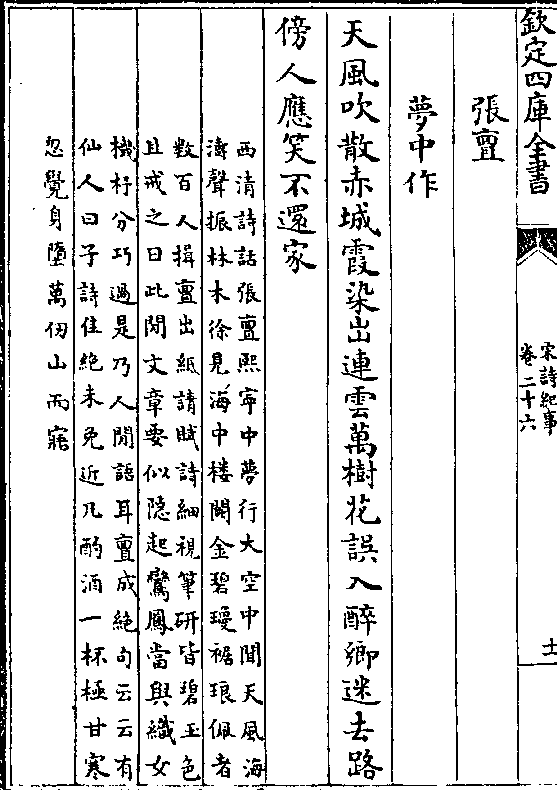 欽定四庫全書
宋詩紀事
卷二十六
十
張亶
夢中作
天風吹散赤城霞染出連雲萬樹花誤入醉鄉迷去路
傍人應笑不還家
西清詩話張亶熙寜中夢行大空中聞天風海
濤聲振林木徐見海中楼闕金碧瓊裾琅佩者
数百人揖亶出紙請賦詩細視筆研皆碧玉色
且戒之曰此間文章要似隠起鸞鳳當與織女
機杼分巧過是乃人間語耳亶成絶句云云有
仙人曰子詩佳絶未免近凡酌酒一杯極甘寒
忽覺身墮萬仞山而寤